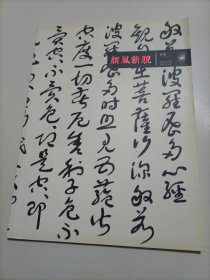 顏風新貌
般若波羅蜜多心經
觀自在菩薩行深般若
波羅蜜多時照見五蘊皆
空度一切苦厄舍利子色不
異空々不異色々即是空々即